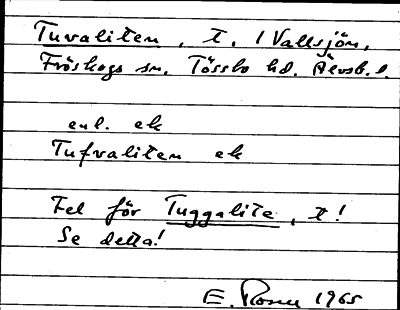 Tuvaliten, t. i Vallsjön,
Fröskogs sn. Tössbo hd. Älvsb. l.
enl. ek
Tufvaliten ek
Fel för Tuggalite, t!
Se detta!
E. Rosell 1965